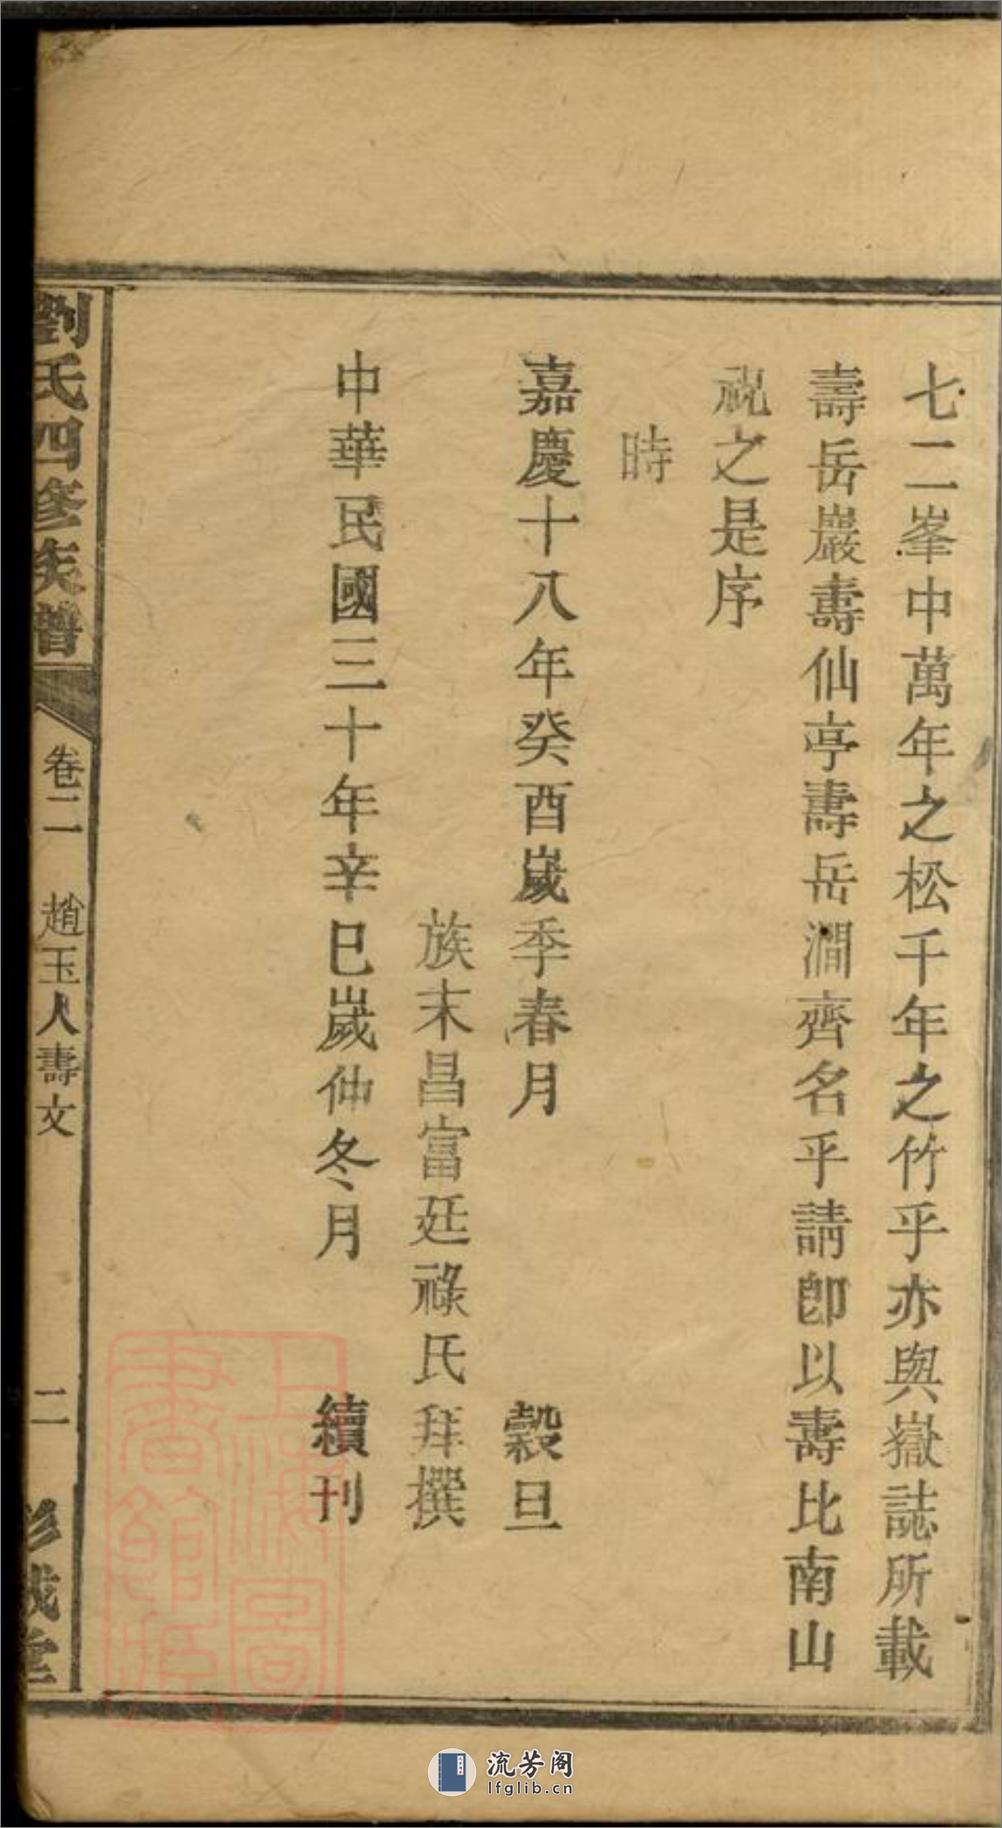 七二峯中萬年之松千年之竹乎亦與嶽誌所載
壽岳巖壽仙亭壽岳澗齊名乎請卽以壽比南山
祝之是序
時
嘉慶十八年癸酉歲季春月 穀旦
族末昌富廷祿氏拜撰
中華民國三十年辛巳歲仲冬月 續刊
劉氏四修族譜
卷二 趙玉人壽文 二
彭城堂
上海圖書館藏
流芳阁
lfglib.cn